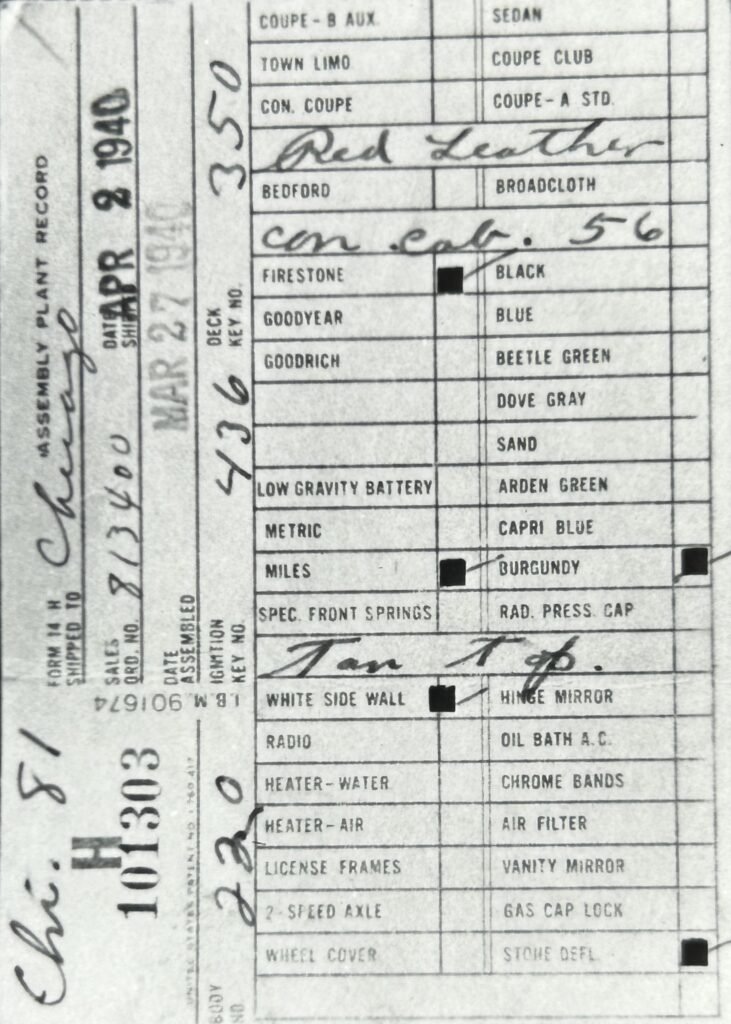 FORM 14 H ASSEMBLY PLANT RECORD
SHIPPED TO Chicago
SALES ORD. NO. 813400 DATE SHIP APR 2 1940
DATE ASSEMBLED MAR 27 1940
IGNITION KEY NO. 436 DECK KEY NO. 350
I.B.M. 901674
Chi. 81
H
101303
UNITED STATES PATENT NO. 1,760,417
BODY NO 230
COUPE - B AUX. SEDAN
TOWN LIMO COUPE CLUB
CON. COUPE COUPE - A STD.
Red Leather
BEDFORD BROADCLOTH
con. cab. 56
FIRESTONE BLACK
GOODYEAR BLUE
GOODRICH BEETLE GREEN
DOVE GRAY
SAND
LOW GRAVITY BATTERY ARDEN GREEN
METRIC CAPRI BLUE
MILES BURGUNDY
SPEC. FRONT SPRINGS RAD. PRESS. CAP
Tan Top.
WHITE SIDE WALL HINGE MIRROR
RADIO OIL BATH A.C.
HEATER - WATER CHROME BANDS
HEATER - AIR AIR FILTER
LICENSE FRAMES VANITY MIRROR
2-SPEED AXLE GAS CAP LOCK
WHEEL COVER STONE DEFL.